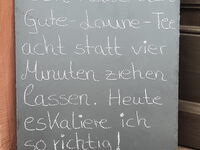 Gute-Laune-Tee
acht statt vier
Minuten ziehen
lassen. Heute
eskaliere ich
so richtig!